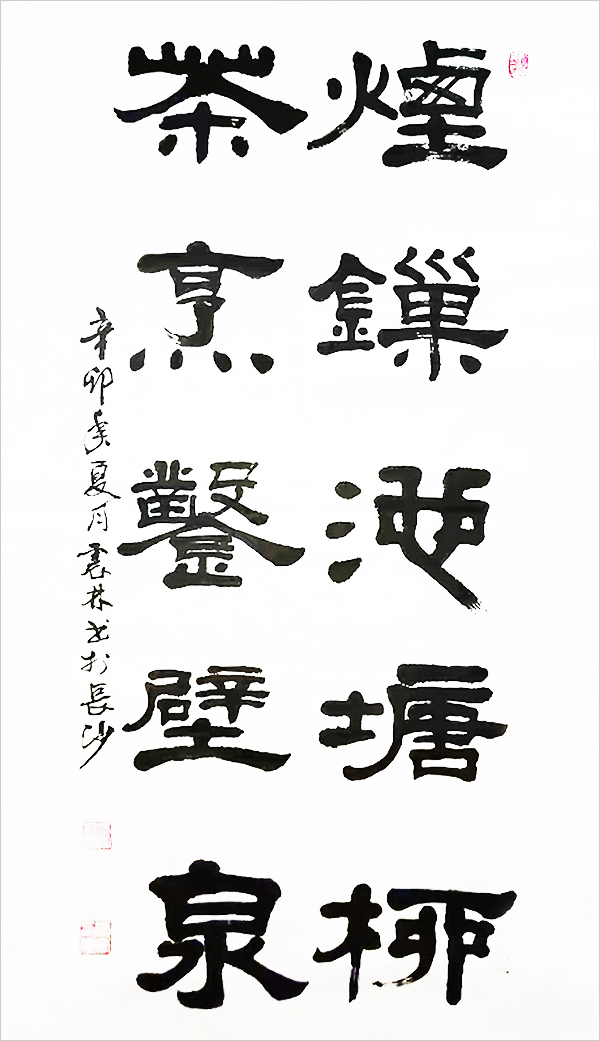 煙鏁池塘柳
茶烹鑿壁泉
辛卯年夏月林書於長沙